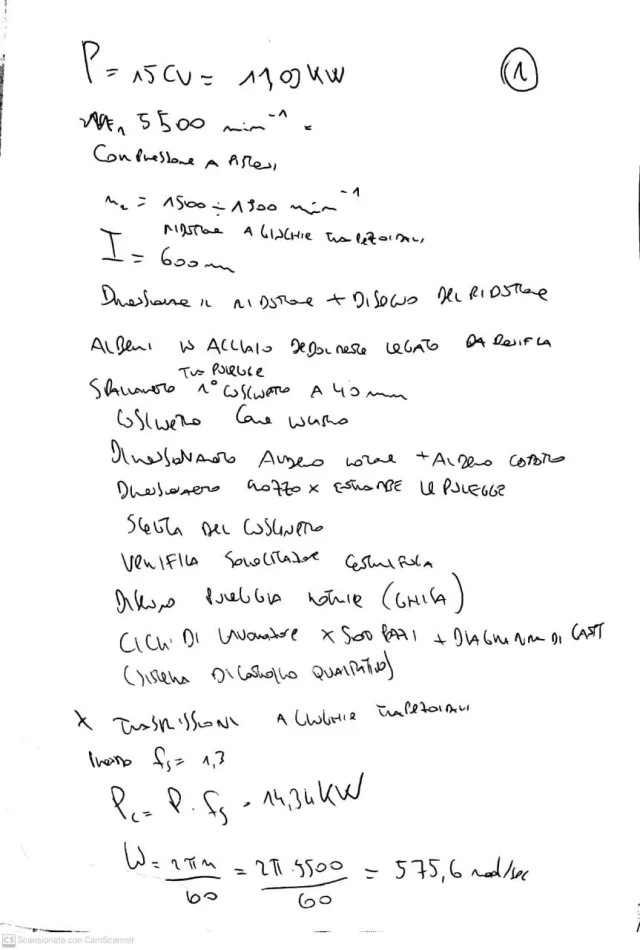 P = 15 CV = 11,03 KW
1
5500 min⁻¹
Compressore a Pistoni
n₂ = 1500 ÷ 1900 min⁻¹
RIDUTTORE A CINGHIE TRAPEZOIDALI
I = 600 mm
Dimensionare il RIDUTTORE + DISEGNO DEL RIDUTTORE
ALBERI IN ACCIAIO LEGATO DA BONIFICA
PULEGGE
1° CUSCINETTO A 40 mm
CUSCINETTO
DIMENSIONAMENTO ALBERO + ALBERO CONDOTTO
MOZZO X ENTRAMBE LE PULEGGE
SCELTA DEL CUSCINETTO
VERIFICA CENTRIFUGA
DISEGNO PULEGGIA MOTRICE (GHISA)
CICLI DI LAVORAZIONE X 500 PEZZI + DIAGRAMMA DI GANTT
(SISTEMA DI CONTROLLO QUALITATIVO)
X TRASMISSIONI A CINGHIE TRAPEZOIDALI
fs = 1,3
Pc = P · fs = 14,34 KW
W = 2πn/60 = 2π·5500/60 = 575,6 rad/sec
CS Scansionato con CamScanner